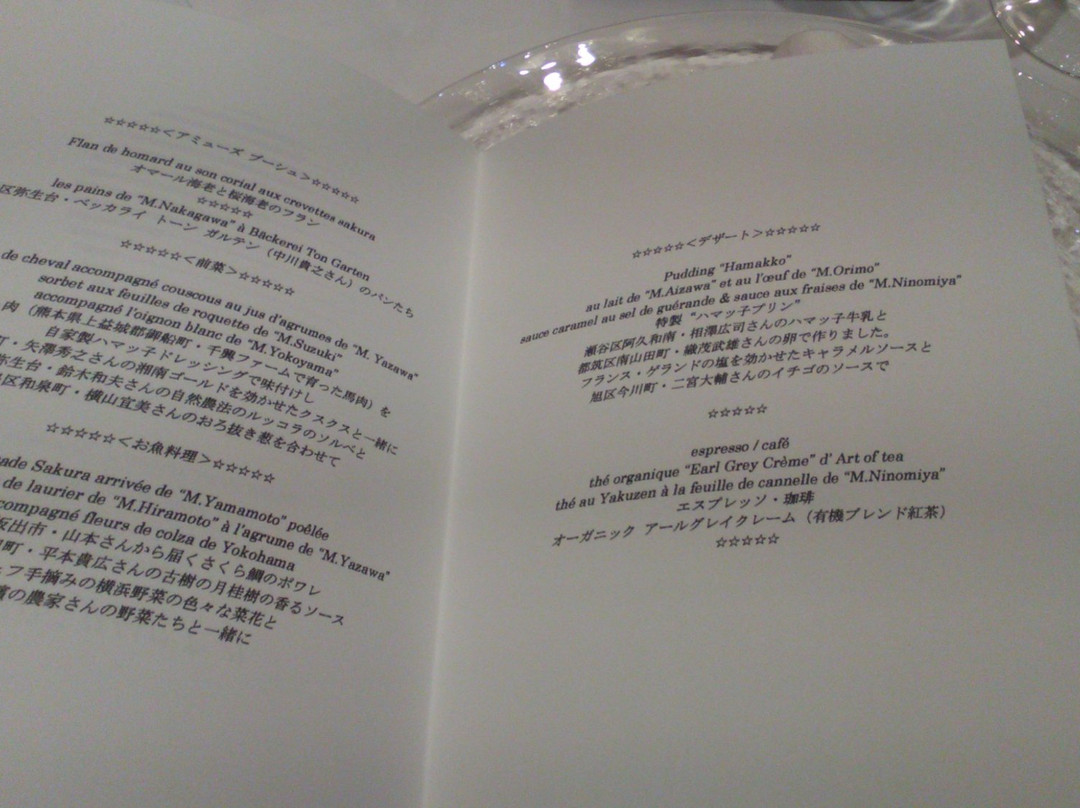 ☆☆☆☆☆<アミューズ ブーシュ>☆☆☆☆☆
Flan de homard au son corial aux crevettes sakura
オマール海老と桜海老のフラン
☆☆☆☆☆
les pains de “M.Nakagawa” à Bäckerei Ton Garten
区弥生台・ベッカライ トーン ガルテン（中川貴之さん）のパンたち
☆☆☆☆☆<前菜>☆☆☆☆☆
de cheval accompagné couscous au jus d'agrumes de “M. Yazawa”
sorbet aux feuilles de roquette de “M.Suzuki”
accompagné l'oignon blanc de “M.Yokoyama”
肉（熊本県上益城郡御船町・千興ファームで育った馬肉）を
自家製ハマッ子ドレッシングで味付けし
町・矢澤秀之さんの湘南ゴールドを効かせたクスクスと一緒に
弥生台・鈴木和夫さんの自然農法のルッコラのソルベと
区和泉町・横山宜美さんのおろ抜き葱を合わせて
☆☆☆☆☆<お魚料理>☆☆☆☆☆
ade Sakura arrivée de “M.Yamamoto” poêlée
de laurier de “M.Hiramoto” à l'agrume de “M.Yazawa”
compagné fleurs de colza de Yokohama
坂出市・山本さんから届くさくら鯛のポワレ
町・平本貴広さんの古樹の月桂樹の香るソース
ェフ手摘みの横浜野菜の色々な菜花と
の農家さんの野菜たちと一緒に
☆☆☆☆☆<デザート>☆☆☆☆☆
Pudding “Hamakko”
au lait de “M.Aizawa” et au l'œuf de “M.Orimo”
sauce caramel au sel de guérande & sauce aux fraises de “M.Ninomiya”
特製 “ハマッ子プリン”
瀬谷区阿久和南・相澤広司さんのハマッ子牛乳と
都筑区南山田町・織茂武雄さんの卵で作りました。
フランス・ゲランドの塩を効かせたキャラメルソースと
旭区今川町・二宮大輔さんのイチゴのソースで
☆☆☆☆☆
espresso / café
thé organique “Earl Grey Crème” d' Art of tea
thé au Yakuzen à la feuille de cannelle de “M.Ninomiya”
エスプレッソ・珈琲
オーガニック アールグレイクレーム（有機ブレンド紅茶）
☆☆☆☆☆